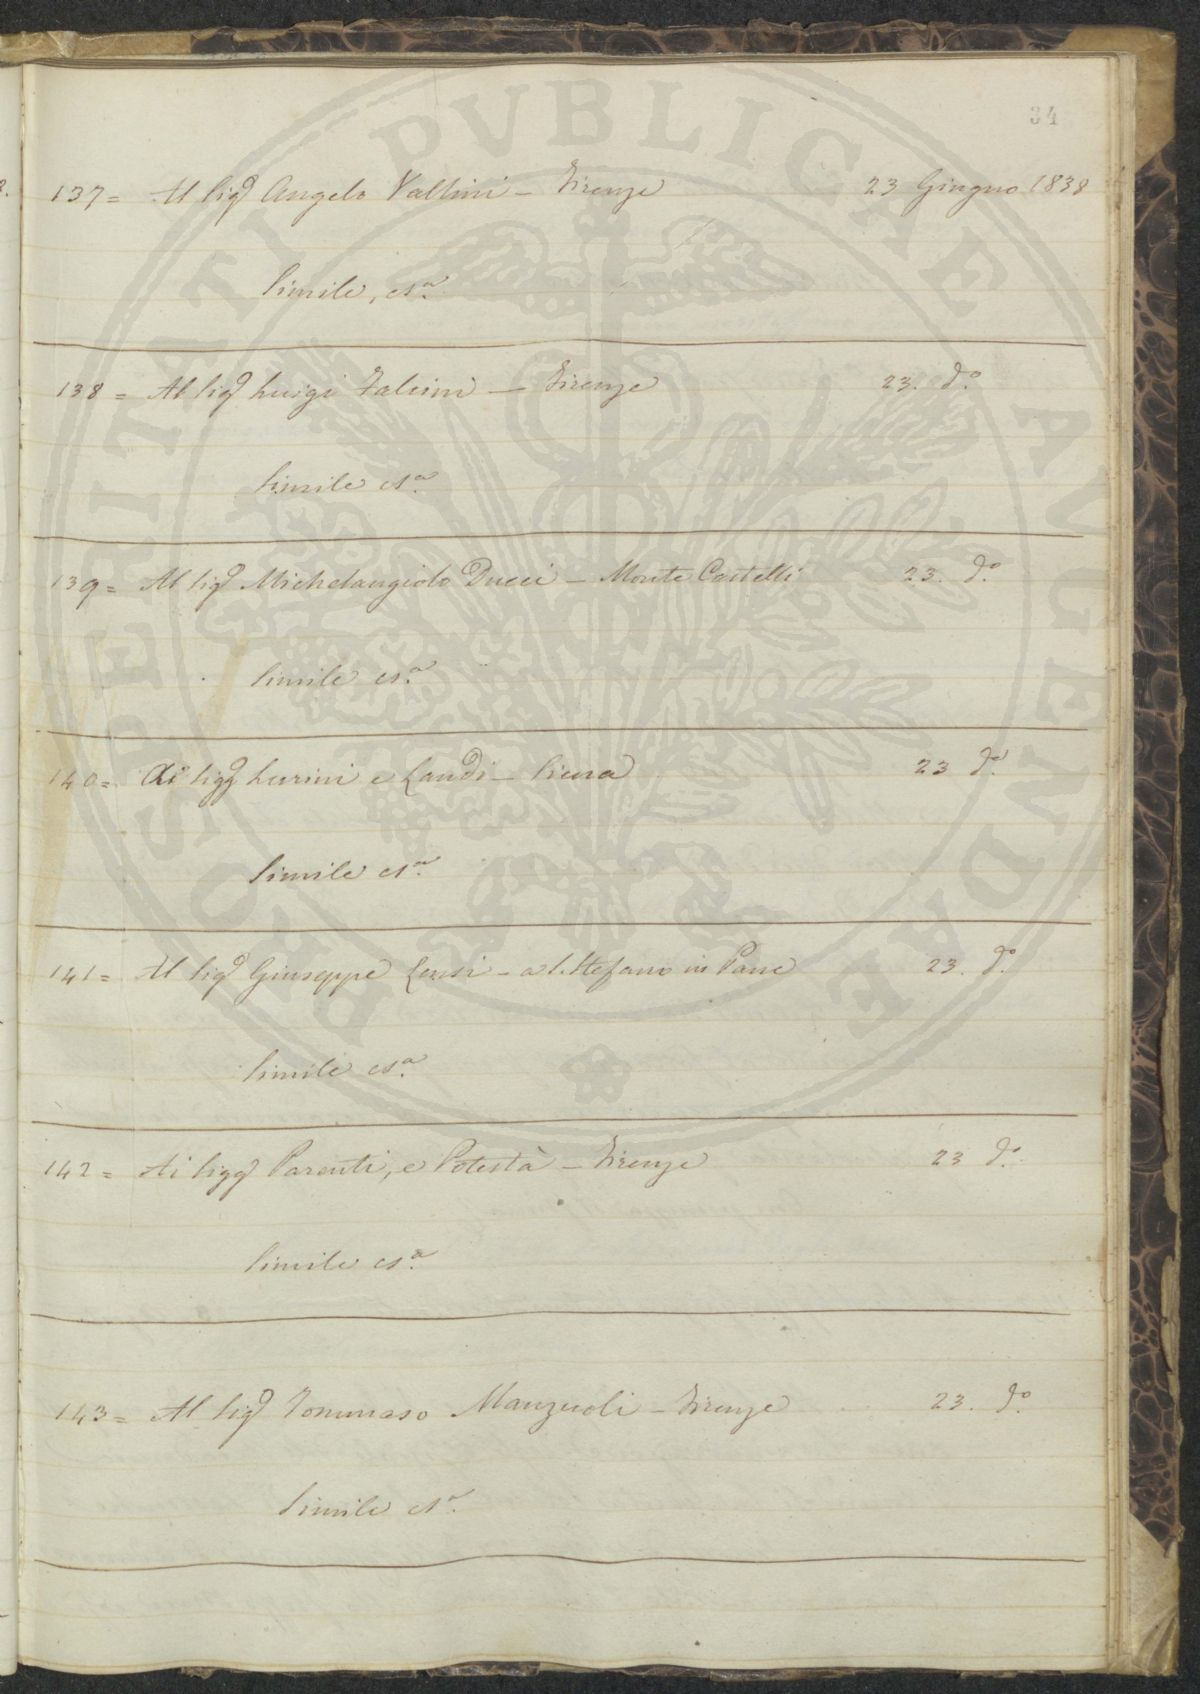 34
137= Al Sig.r Angelo Vallini - Firenze 23 Giugno 1838
Simile, es.a
138= Al Sig.r Luigi Falcini - Firenze 23. d.o
Simile es.a
139= Al Sig.r Michelangiolo Ducci - Monte Castelli 23. d.o
Simile es.a
140= Ai Sigg.i Lurini e Landi - Siena 23 d.o
Simile es.a
141= Al Sig.r Giuseppe Lensi - a S. Stefano in Pane 23. d.o
Simile es.a
142= Ai Sigg.i Parenti, e Potestà - Firenze 23 d.o
Simile es.a
143= Al Sig.r Tommaso Manzuoli - Firenze 23. d.o
Simile es.a
PROSPERITATI PVBLICAE AVGENDAE